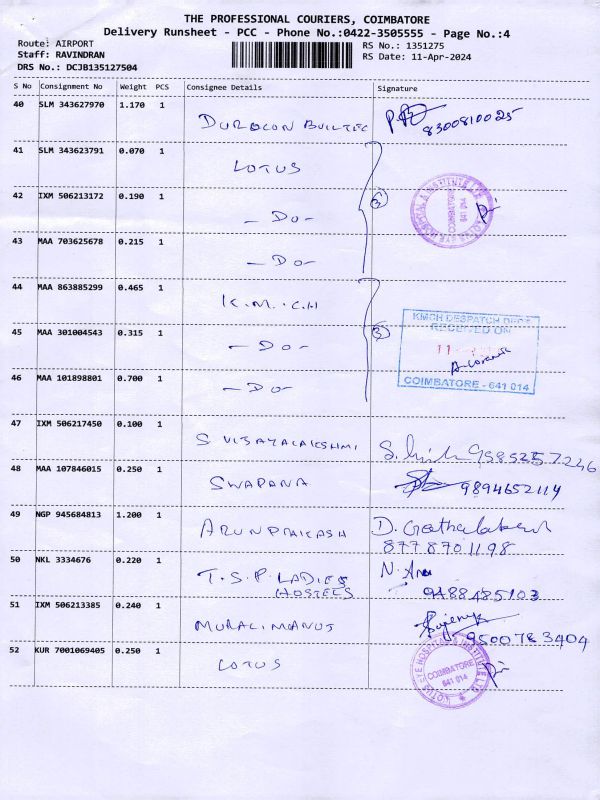 THE PROFESSIONAL COURIERS, COIMBATORE
Delivery Runsheet - PCC - Phone No.:0422-3505555 - Page No.:4
Route: AIRPORT
Staff: RAVINDRAN
DRS No.: DCJB135127504
RS No.: 1351275
RS Date: 11-Apr-2024
S No Consignment No Weight PCS Consignee Details Signature
40 SLM 343627970 1.170 1 DUROCON BUILTEC 8300810025
41 SLM 343623791 0.070 1 LOTUS
42 IXM 506213172 0.190 1 - DO -
43 MAA 703625678 0.215 1 - DO -
3
LOTUS EYE HOSPITAL & INSTITUTE LTD
COIMBATORE
641 014
44 MAA 863885299 0.465 1 K.M.C.H
45 MAA 301004543 0.315 1 - DO -
46 MAA 101898801 0.700 1 - DO -
3
KMCH DESPATCH DEPT
RECEIVED ON
11
COIMBATORE - 641 014
47 IXM 506217450 0.100 1 S VIJAYALAKSHMI 9585257246
48 MAA 107846015 0.250 1 SWAPANA 9894652114
49 NGP 945684813 1.200 1 ARUNPRAKASH D.
8778701198
50 NKL 3334676 0.220 1 T.S.P. LADIES N.
HOSTELS 9488485103
51 IXM 506213385 0.240 1 MURALIMANOJ
9500783404
52 KUR 7001069405 0.250 1 LOTUS
LOTUS EYE HOSPITAL & INSTITUTE LTD
COIMBATORE
641 014